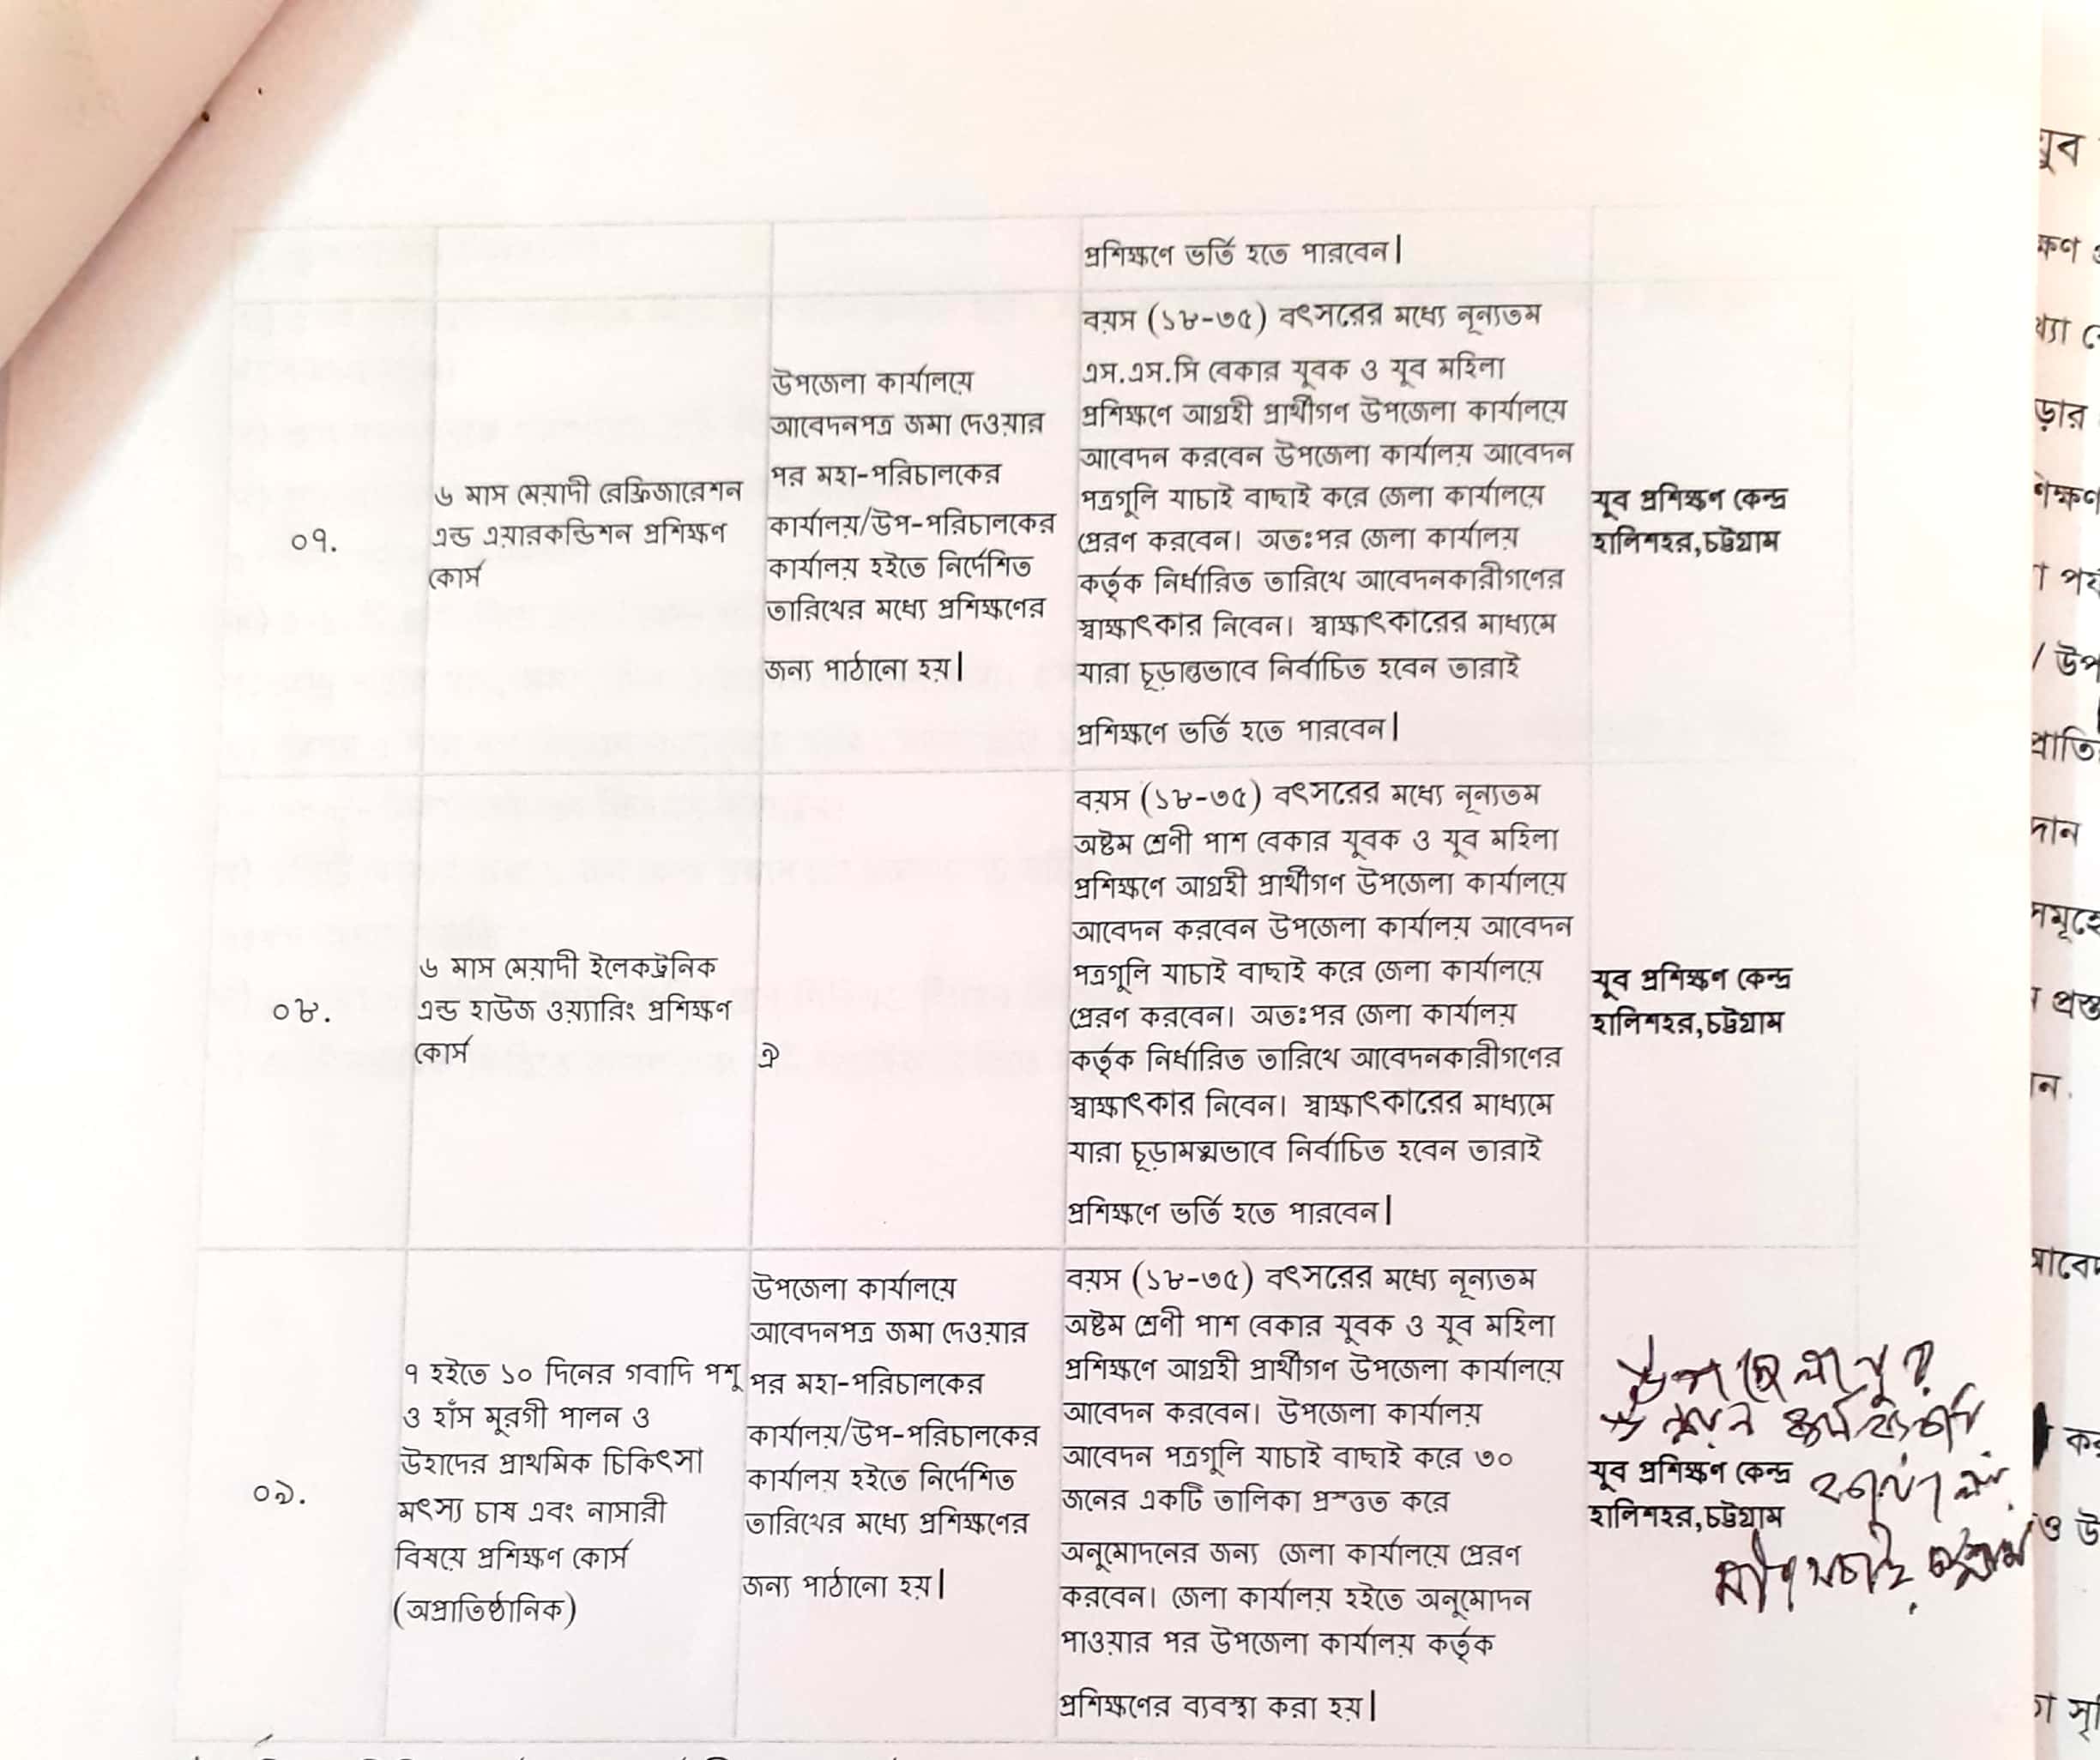 প্রশিক্ষণে ভর্তি হতে পারবেন|
০৭.
৬ মাস মেয়াদী রেফ্রিজারেশন
এন্ড এয়ারকন্ডিশন প্রশিক্ষণ
কোর্স
উপজেলা কার্যালয়ে
আবেদনপত্র জমা দেওয়ার
পর মহা-পরিচালকের
কার্যালয়/উপ-পরিচালকের
কার্যালয় হইতে নির্দেশিত
তারিখের মধ্যে প্রশিক্ষণের
জন্য পাঠানো হয়|
বয়স (১৮-৩৫) বৎসরের মধ্যে নূন্যতম
এস.এস.সি বেকার যুবক ও যুব মহিলা
প্রশিক্ষণে আগ্রহী প্রার্থীগণ উপজেলা কার্যালয়ে
আবেদন করবেন উপজেলা কার্যালয় আবেদন
পত্রগুলি যাচাই বাছাই করে জেলা কার্যালয়ে
প্রেরণ করবেন। অতঃপর জেলা কার্যালয়
কর্তৃক নির্ধারিত তারিখে আবেদনকারীগণের
স্বাক্ষাৎকার নিবেন। স্বাক্ষাৎকারের মাধ্যমে
যারা চূড়ান্তভাবে নির্বাচিত হবেন তারাই
প্রশিক্ষণে ভর্তি হতে পারবেন|
যুব প্রশিক্ষণ কেন্দ্র
হালিশহর,চট্টগ্রাম
০৮.
৬ মাস মেয়াদী ইলেকট্রনিক
এন্ড হাউজ ওয়্যারিং প্রশিক্ষণ
কোর্স
ঐ
বয়স (১৮-৩৫) বৎসরের মধ্যে নূন্যতম
অষ্টম শ্রেণী পাশ বেকার যুবক ও যুব মহিলা
প্রশিক্ষণে আগ্রহী প্রার্থীগণ উপজেলা কার্যালয়ে
আবেদন করবেন উপজেলা কার্যালয় আবেদন
পত্রগুলি যাচাই বাছাই করে জেলা কার্যালয়ে
প্রেরণ করবেন। অতঃপর জেলা কার্যালয়
কর্তৃক নির্ধারিত তারিখে আবেদনকারীগণের
স্বাক্ষাৎকার নিবেন। স্বাক্ষাৎকারের মাধ্যমে
যারা চূড়ামত্মভাবে নির্বাচিত হবেন তারাই
প্রশিক্ষণে ভর্তি হতে পারবেন|
যুব প্রশিক্ষণ কেন্দ্র
হালিশহর,চট্টগ্রাম
০৯.
৭ হইতে ১০ দিনের গবাদি পশু
ও হাঁস মূরগী পালন ও
উহাদের প্রাথমিক চিকিৎসা
মৎস্য চাষ এবং নাসারী
বিষয়ে প্রশিক্ষণ কোর্স
(অপ্রাতিষ্ঠানিক)
উপজেলা কার্যালয়ে
আবেদনপত্র জমা দেওয়ার
পর মহা-পরিচালকের
কার্যালয়/উপ-পরিচালকের
কার্যালয় হইতে নির্দেশিত
তারিখের মধ্যে প্রশিক্ষণের
জন্য পাঠানো হয়|
বয়স (১৮-৩৫) বৎসরের মধ্যে নূন্যতম
অষ্টম শ্রেণী পাশ বেকার যুবক ও যুব মহিলা
প্রশিক্ষণে আগ্রহী প্রার্থীগণ উপজেলা কার্যালয়ে
আবেদন করবেন। উপজেলা কার্যালয়
আবেদন পত্রগুলি যাচাই বাছাই করে ৩০
জনের একটি তালিকা প্রস্তুত করে
অনুমোদনের জন্য জেলা কার্যালয়ে প্রেরণ
করবেন। জেলা কার্যালয় হইতে অনুমোদন
পাওয়ার পর উপজেলা কার্যালয় কর্তৃক
প্রশিক্ষণের ব্যবস্থা করা হয়|
যুব প্রশিক্ষণ কেন্দ্র
হালিশহর,চট্টগ্রাম